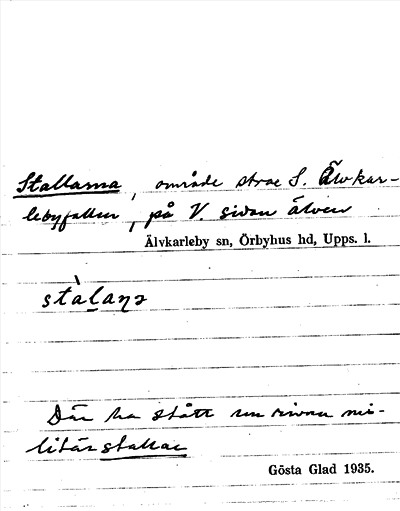 Stallarna, område strax S. Älvkar-
lebyfallen, på V. sidan älven
Älvkarleby sn, Örbyhus hd, Upps. l.
stàlaṇə
Där ha stått en mi-
litärstallar
Gösta Glad 1935.